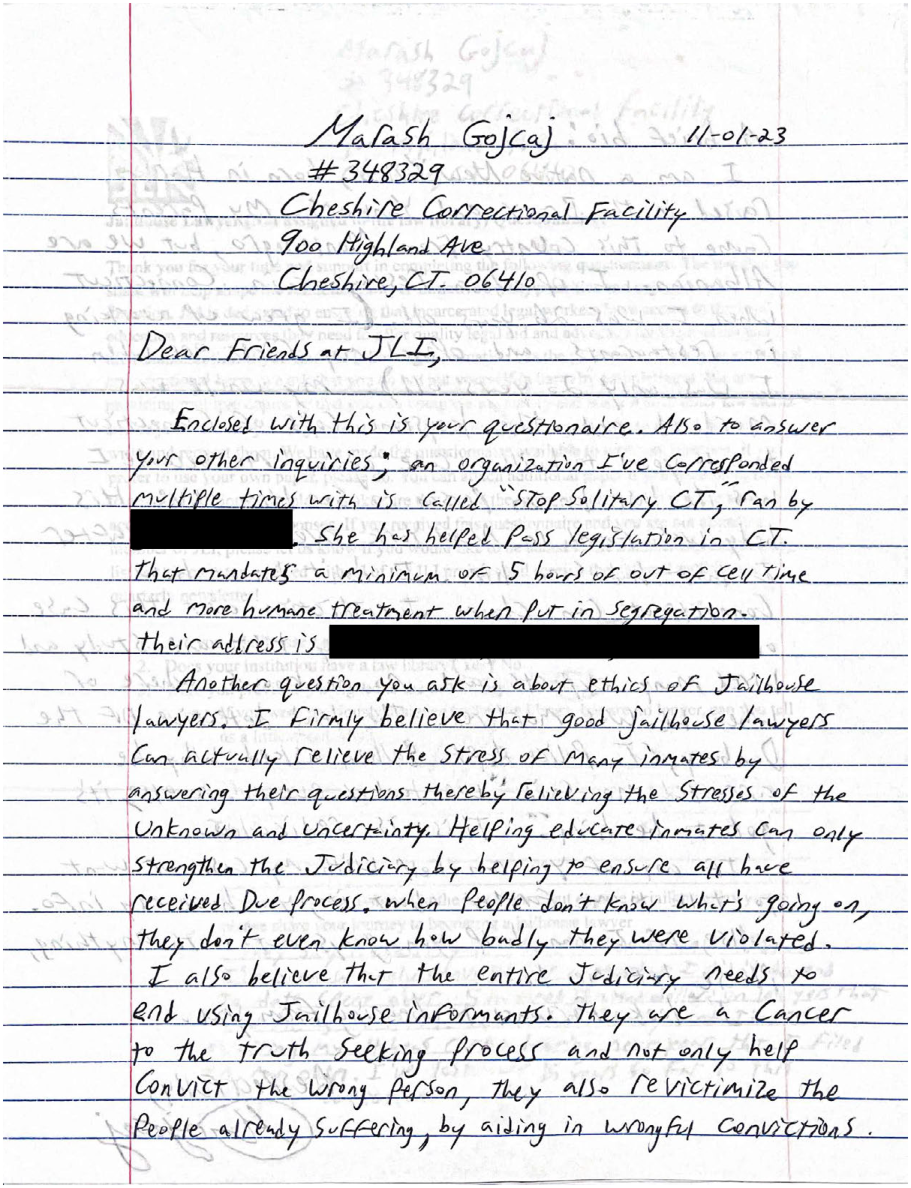 Marash Gojcaj 11-01-23
#348329
Cheshire Correctional Facility
900 Highland Ave
Cheshire, CT. 06410
Dear Friends at JLI,
Enclosed with this is your questionaire. Also to answer
your other inquiries; an organization I've corresponded
multiple times with is called "Stop Solitary CT," ran by
. She has helped pass legislation in CT.
that mandates a minimum of 5 hours of out of cell time
and more humane treatment when put in segregation.
their address is
Another question you ask is about ethics of Jailhouse
lawyers. I firmly believe that good jailhouse lawyers
can actually relieve the stress of many inmates by
answering their questions thereby relieving the stresses of the
unknown and uncertainty. Helping educate inmates can only
strengthen the Judiciary by helping to ensure all have
received Due Process. when people don't know what's going on,
they don't even know how badly they were violated.
I also believe that the entire Judiciary needs to
end using Jailhouse informants. they are a cancer
to the truth seeking process and not only help
convict the wrong person, they also revictimize the
people already suffering, by aiding in wrongful convictions.